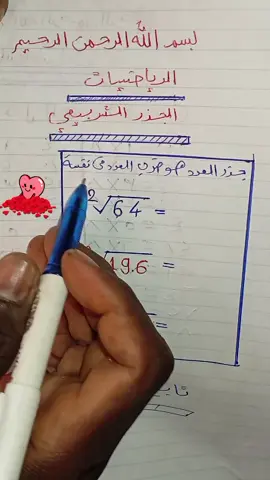 بسم الله الرحمن الرحيم
الرياضيات
الجذر التربيعي
جذر العدد هو ضرب العدد في نفسة
²√64 =
√19.6 =
=